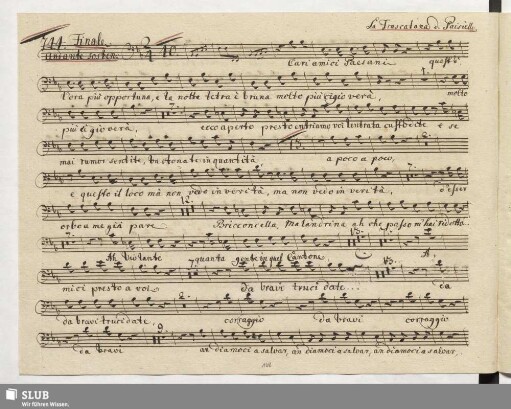 La Frascatana di Paisiello
744. Finale
andante sosten.
Cari amici Paesani quest'
l'ora più opportuna, e la notte tetra è bruna molto più cigio verà, molto
più cigio verà, ecco aperto presto entriamo voi l'entrata custodite e se
mai rumor sentite, bastonate in quantità a poco a poco
e questo il loco mà non vedo in verità, ma non vedo in verità, d'esser
orbo a me già pare Bricconcella, Malandrina ah che passo m'hai ridotto
Ah Violante quanta gente in quel Cantone A,
mici presto a voi da bravi truci date... da
da bravi trucidate, corraggio da bravi corraggio
da bravi andiamoci a salvar, andiamoci a salvar, andiamoci a salvar,
SLUB
Wir führen Wissen.